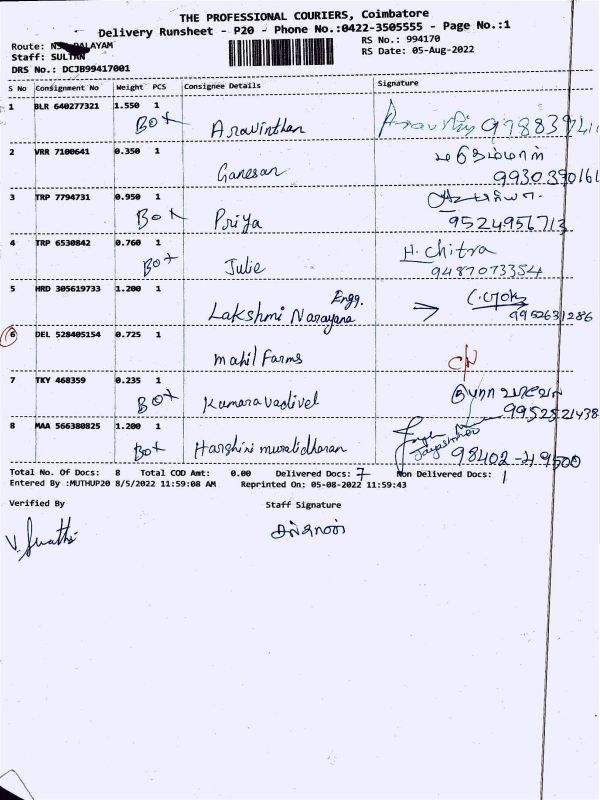 THE PROFESSIONAL COURIERS, Coimbatore
Delivery Runsheet - P20 - Phone No.:0422-3505555 - Page No.:1
Route: PALAYAM RS No.: 994170
Staff: SULTAN RS Date: 05-Aug-2022
DRS No.: DCJB99417001
S No Consignment No Weight PCS Consignee Details Signature
1 BLR 640277321 1.550 1
Box Aravinthan
2 VRR 7100641 0.350 1
Ganesan 9930390161
3 TRP 7794731 0.950 1
Box Priya 9524956713
4 TRP 6530842 0.760 1 H. Chitra
Box Julie 9487073354
5 HRD 305619733 1.200 1 Engg.
Lakshmi Narayana 9952631286
6 DEL 528405154 0.725 1
Mahil Farms CN
7 TKY 468359 0.235 1
Box Kumaravadivel 9952521438
8 MAA 566380825 1.200 1
Box Harshini muralidharan 98402-49500
Total No. Of Docs: 8 Total COD Amt: 0.00 Delivered Docs: 7 Non Delivered Docs: 1
Entered By :MUTHUP20 8/5/2022 11:59:08 AM Reprinted On: 05-08-2022 11:59:43
Verified By Staff Signature
V. Swathi சுல்தான்